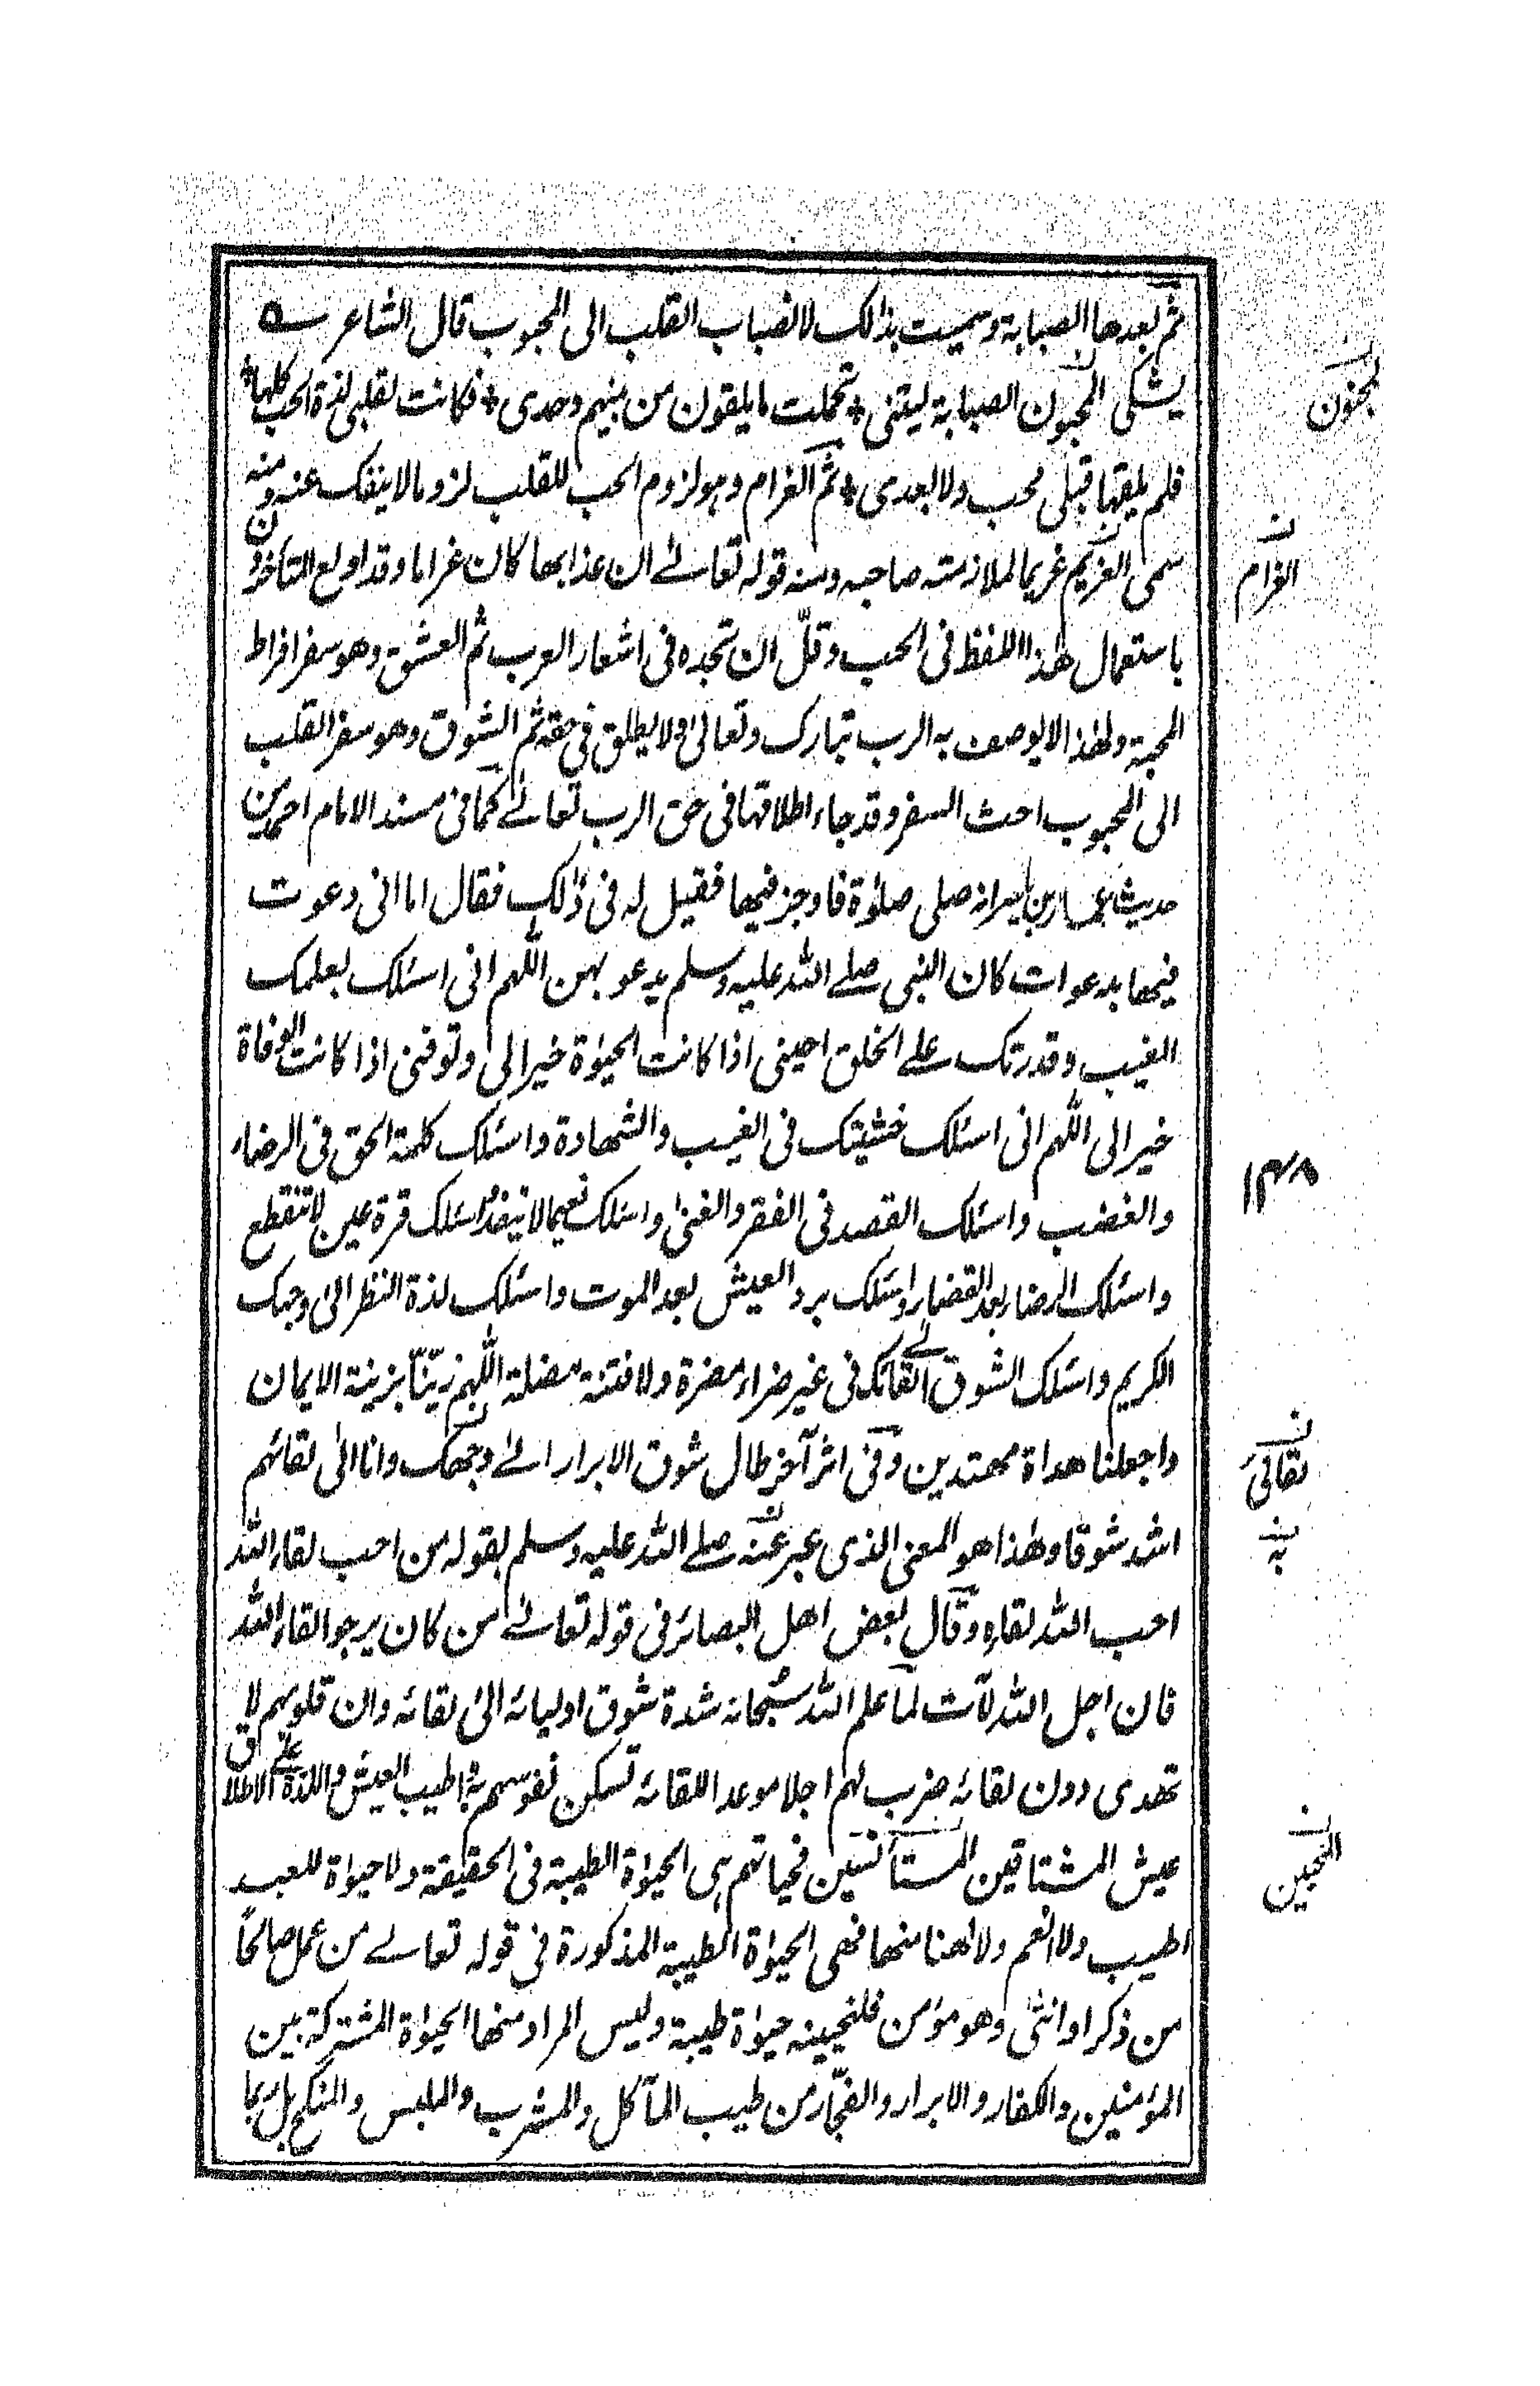 ثم بعدها الصبابة وسميت بذالك لانصباب القلب الى المحبوب قال الشاعر ؎
يشكى المحبون الصبابة ليتنى * تحملت ما يلقون من بينهم وحدى * فكانت لقلبى لذة الحب كلها *
فلم يلقها قبلى محب ولا بعدى * ثم الغرام وهو لزوم الحب للقلب لزوما لا ينفك عنه ومنه
سمى الغريم غريما لملازمته صاحبه ومنه قوله تعالے ان عذابها كان غراما وقد اولع المتاخرون
باستعمال هٰذا اللفظ فى الحب وقلّ ان تجده فى اشعار العرب ثم العشق وهو سفر افراط
المحبة ولهٰذا لا يوصف به الرب تبارك وتعالىٰ ولا يطلق فى حقه ثم الشوق وهو سفر القلب
الى المحبوب احث السفر وقد جاء اطلاقها فى حق الرب تعالے كما فى مسند الامام احمد من
حديث عمار بن ياسر انه صلى صلوٰة فاوجز فيها فقيل له فى ذٰلك فقال اما انى دعوت
فيها بدعوات كان النبى صلے الله عليه وسلم يدعو بهن اللهم انى اسئلك بعلمك
الغيب وقدرتك علے الخلق احينى اذا كانت الحيوٰة خيرا لى وتوفنى اذا كانت الوفاة
خيرا لى اللهم انى اسئلك خشيتك فى الغيب والشهادة واسئلك كلمة الحق فى الرضاء
والغضب واسئلك القصد فى الفقر والغنىٰ واسئلك نعيما لا ينفد واسئلك قرة عين لا تنقطع
واسئلك الرضاء بعد القضاء واسئلك برد العيش بعد الموت واسئلك لذة النظر الىٰ وجهك
الكريم واسئلك الشوق الے لقائك فى غير ضراء مضرة ولا فتنة مضلة اللهم زيّنّا بزينة الايمان
واجعلنا هداة مهتدين وفى اثر آخر طال شوق الابرار الے وجهك وانا الىٰ لقائهم
اشد شوقا وهٰذا هو المعنى الذى عبر عنه صلے الله عليه وسلم بقوله من احب لقاء الله
احب الله لقاءه وقال بعض اهل البصائر فى قوله تعالے من كان يرجوا لقاء الله
فان اجل الله لآت لما علم الله سبحانه شدة شوق اوليائه الىٰ لقائه وان قلوبهم لا
تهدى دون لقائه ضرب لهم اجلا موعدا للقائه تسكن نفوسهم به واطيب العيش والذه علے الاطلاق
عيش المشتاقين المستأنسين فحياتهم هى الحيوٰة الطيبة فى الحقيقة ولا حيوٰة للعبد
اطيب ولا انعم ولا اهنا منها فهى الحيوٰة الطيبة المذكورة فى قوله تعالے من عمل صالحًا
من ذكر او انثىٰ وهو مؤمن فلنحيينه حيوٰة طيبة وليس المراد منها الحيوٰة المشتركة بين
المؤمنين والكفار والابرار والفجّار من طيب المآكل والمشرب والملبس والمنكح بل ربما
ن
الغرام
۱۴۸
ن
لقائىٰ
ن
به
ن
المحبين